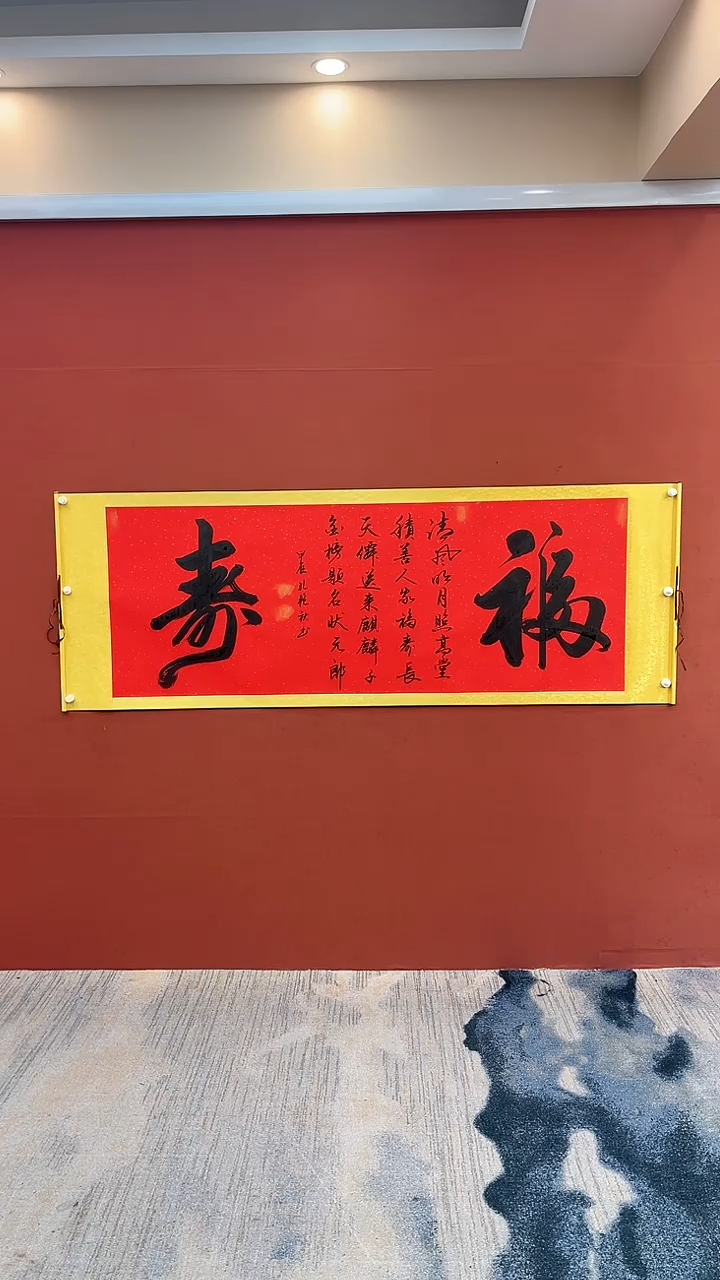 福
清风明月照高堂
積善人家福寿長
天僻送来麒麟子
金榜题名状元郎
甲辰
寿